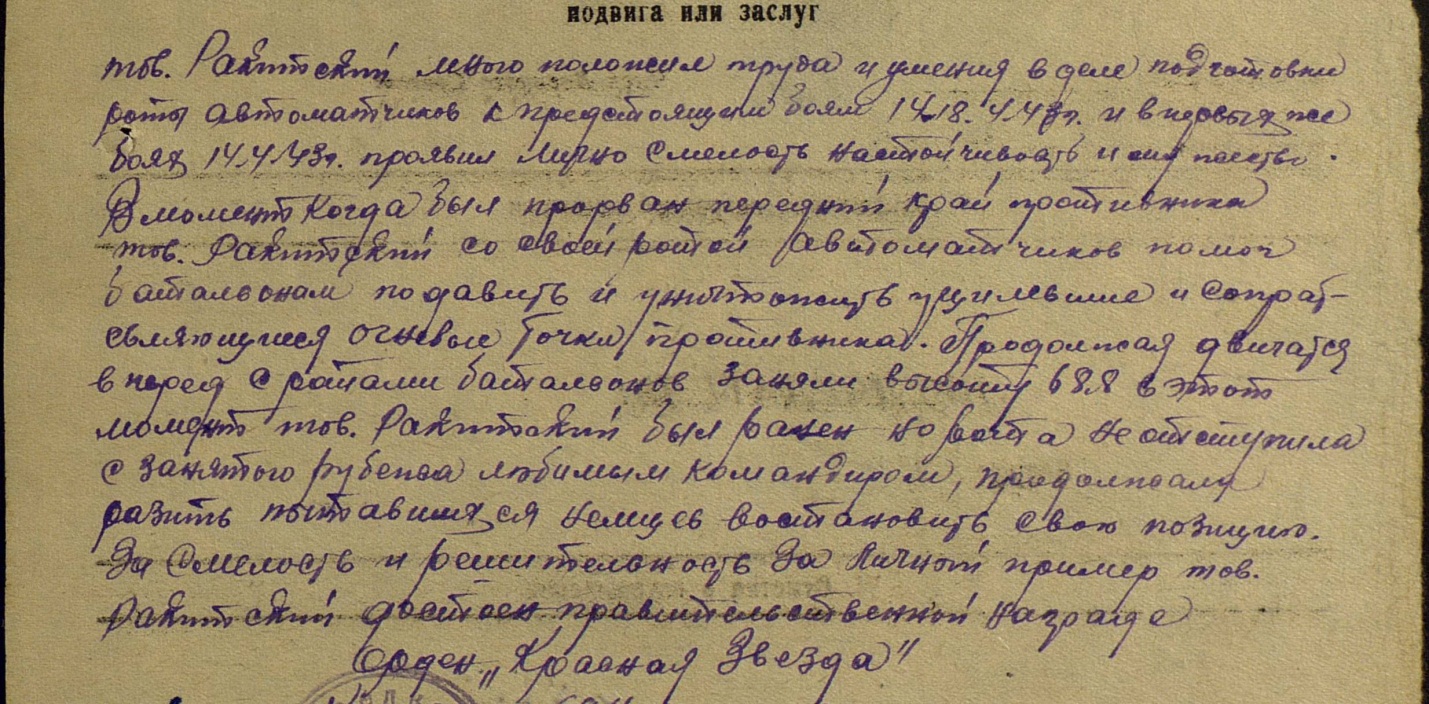 подвига или заслуг
тов. Ракитский много положил труда и умения в деле подготовки
роты автоматчиков к предстоящим боям 14-18.4.43г. и в первых же
боях 14.4.43г. проявил лично смелость настойчивость и
В момент когда был прорван передний край противника
тов. Ракитский со своей ротой автоматчиков помог
баталеонам подавить и уничтожить уцилевшие и сопрат-
свляющиеся огневые точки противника. Продолжая двигатся
вперед с ротами баталеонов заняли высоту 68.8 в этот
момент тов. Ракитский был ранен но рота не отступила
с занятого рубежа любимым командиром, продолжала
разить пытавшихся немцев востановить свою позицию.
За смелость и решительность за личный пример тов.
Ракитский достоен правительственной награде
Орден „Красная Звезда"